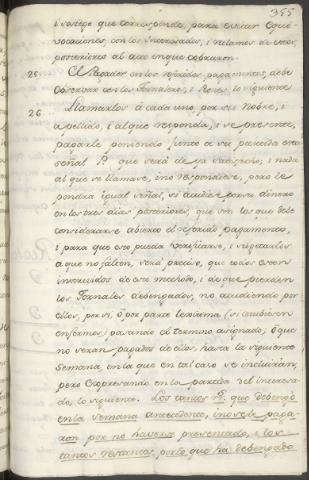 355
i sosiego que corresponde, para evitar equi-
vocaciones, con los Interesados, i reclamos de estos,
posteriores al que en que cobraron.
25. El Pagador en los referidos pagamentos, debe
observar con los Jornaleros, i Reos, lo siguiente
26. Llamarlos á cada uno por su Nobre, i
apellido, i al que responda, i se presente,
pagarle poniendo junto a su partida esta
señal P. que será de ya satisfecho, i nada
al que se llamare, i no respondiere, pero le
pondrá igual señas, si acudiere por su dinero
en los tres dias posteriores, que son los que debe
considerarse abierto el referido pagamento,
i para que esto pueda verificarse, i sugetarlos
a que no falten, será preciso, que todos esten
instruidos de este methodo, i de que pierden
los Jornales debengados, no acudiendo por
ellos, por si, ó por parte lexitima (si estubiesen
enfermos) pasando el termino asignado, ó que
no seran pagados de ellos, hasta la siguiente
semana, en la que en tal caso se incluirán,
pero expresando en la partida del interesa-
do, lo siguiente. Los tantos R.s que debengó
en la semana antecedente, i no se le paga-
ron por no haverse presentado, i los
tantos restantes, por lo que ha debengado